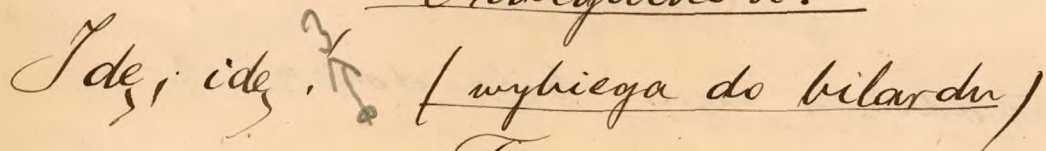 Idę, idę. (wybiega do bilardu)